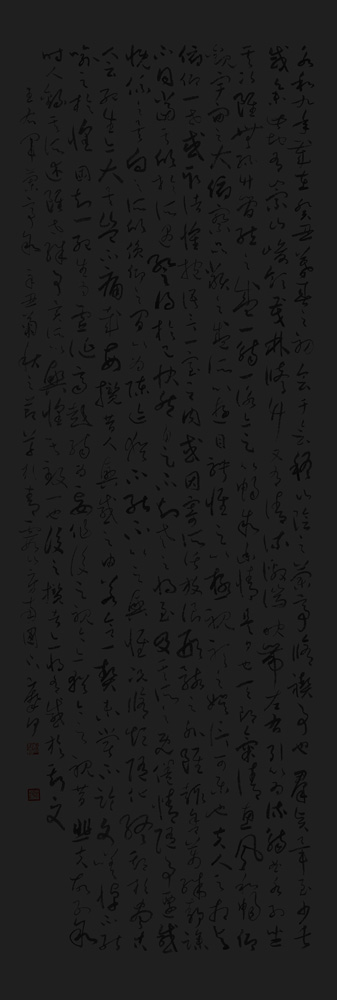 永和九年歲在癸丑暮春之初會于會稽山陰之蘭亭脩禊事也群賢畢至少長
咸集此地有崇山峻領茂林脩竹又有清流激湍映帶左右引以為流觴曲水列坐
其次雖無絲竹管弦之盛一觴一詠亦足以暢敘幽情是日也天朗氣清惠風和暢仰
觀宇宙之大俯察品類之盛所以遊目騁懷足以極視聽之娛信可樂也夫人之相與
俯仰一世或取諸懷抱悟言一室之內或因寄所託放浪形骸之外雖趣舍萬殊靜躁
不同當其欣於所遇暫得於己快然自足不知老之將至及其所之既倦情隨事遷感
慨係之矣向之所欣俛仰之間以為陳迹猶不能不以之興懷況脩短隨化終期於盡古
人云死生亦大矣豈不痛哉每攬昔人興感之由若合一契未嘗不臨文嗟悼不能
喻之於懷固知一死生為虛誕齊彭殤為妄作後之視今亦由今之視昔悲夫故列敘
時人錄其所述雖世殊事異所以興懷其致一也後之攬者亦將有感於斯文
王右軍蘭亭敘辛丑菊秋之節